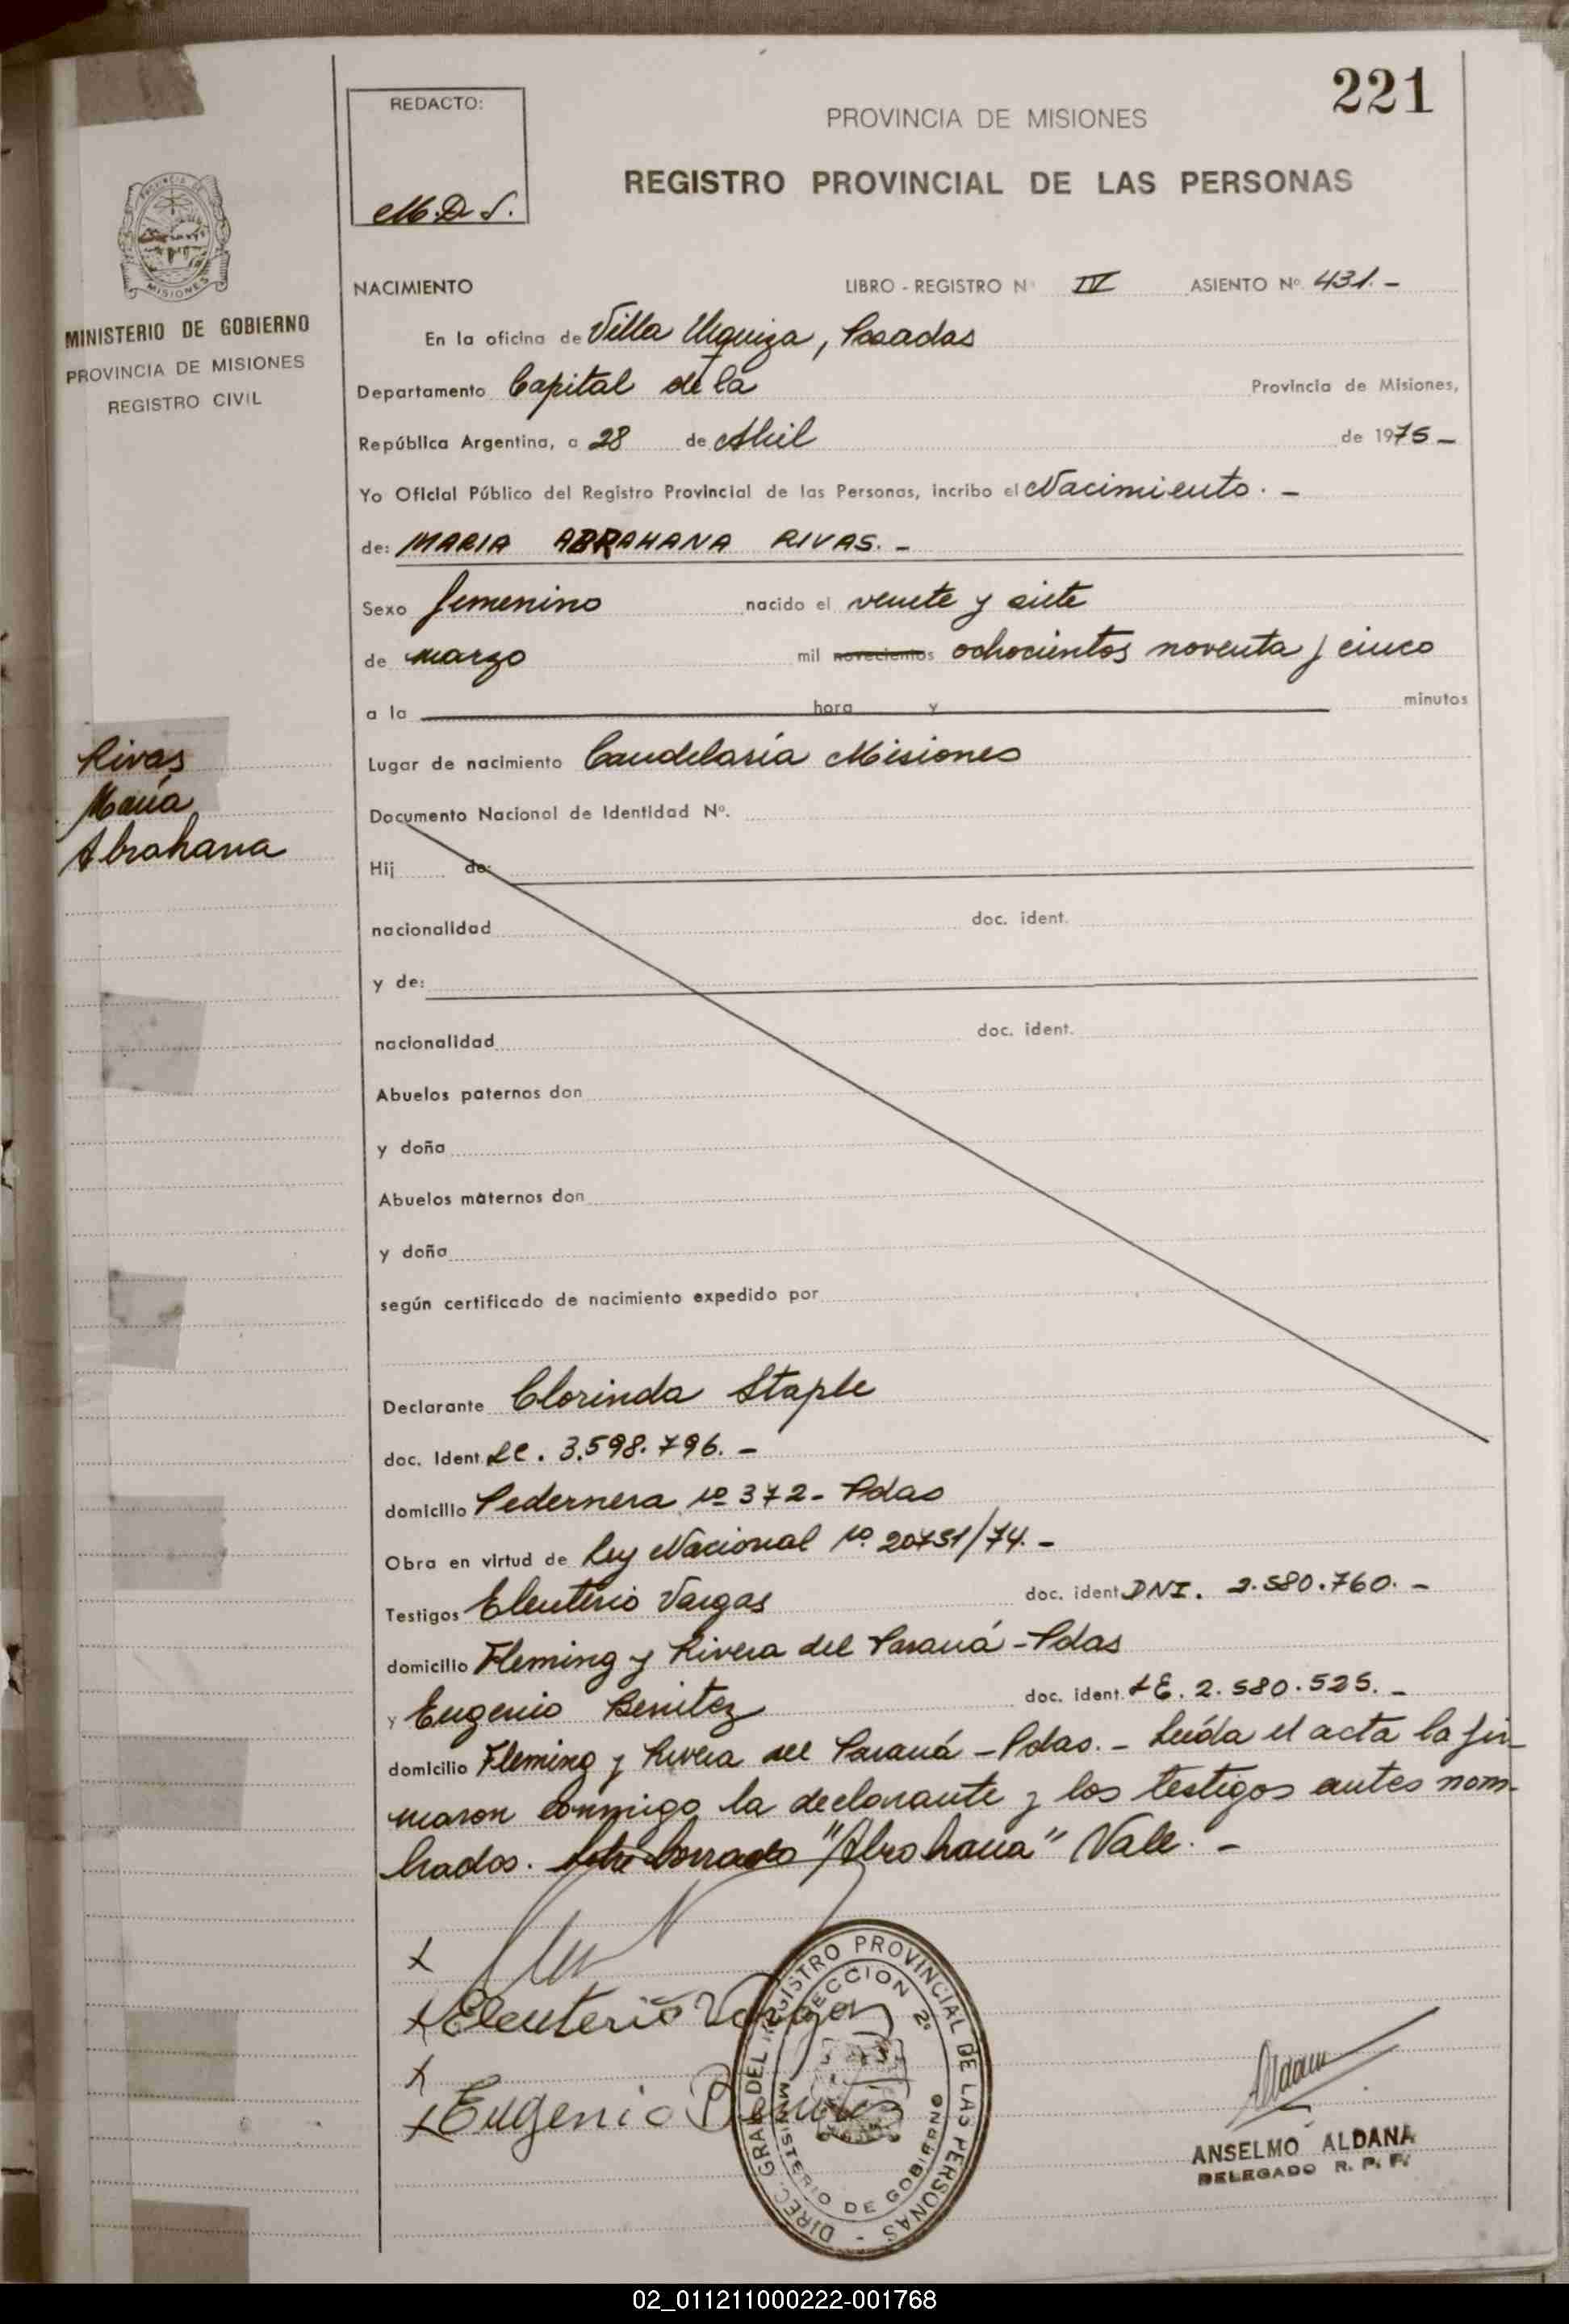 221
REDACTO:
M.D.S.
PROVINCIA DE MISIONES
REGISTRO PROVINCIAL DE LAS PERSONAS
PROVINCIA DE
MISIONES
MINISTERIO DE GOBIERNO
PROVINCIA DE MISIONES
REGISTRO CIVIL
NACIMIENTO LIBRO - REGISTRO N° IV ASIENTO Nº 431.-
En la oficina de Villa Urquiza, Posadas
Departamento Capital de la Provincia de Misiones,
República Argentina, a 28 de Abril de 1975-
Yo Oficial Público del Registro Provincial de las Personas, incribo el Nacimiento.-
de: MARIA ABRAHANA RIVAS.-
Sexo femenino nacido el veinte y siete
de marzo mil novecientos ochocientos noventa y cinco
a la hora y minutos
Rivas
María
Abrahana
Lugar de nacimiento Candelaria Misiones
Documento Nacional de Identidad Nº.
Hij de:
nacionalidad doc. ident.
y de:
nacionalidad doc. ident.
Abuelos paternos don
y doña
Abuelos maternos don
y doña
según certificado de nacimiento expedido por
Declarante Clorinda Staple
doc. Ident LC. 3.598.796.-
domicilio Pedernera nº 372- Pdas
Obra en virtud de Ley Nacional nº. 20751/74.-
Testigos Eleuterio Vargas doc. ident DNI. 2.580.760.-
domicilio Fleming y Rivera del Paraná-Pdas
y Eugenio Benitez doc. ident. LE. 2.580.525.-
domicilio Fleming y Rivera del Paraná-Pdas.- Leída el acta la fir-
maron conmigo la declarante y los testigos antes nom-
brados. Sobre borrado "Abrahana" Vale.-
x
x Eleuterio Vargas
x
x Eugenio Benitez
DIREC. GRAL. DEL REGISTRO PROVINCIAL DE LAS PERSONAS -
SECCION 2ª
MINISTERIO DE GOBIERNO
Aldana
ANSELMO ALDANA
DELEGADO R. P. P.
02_011211000222-001768